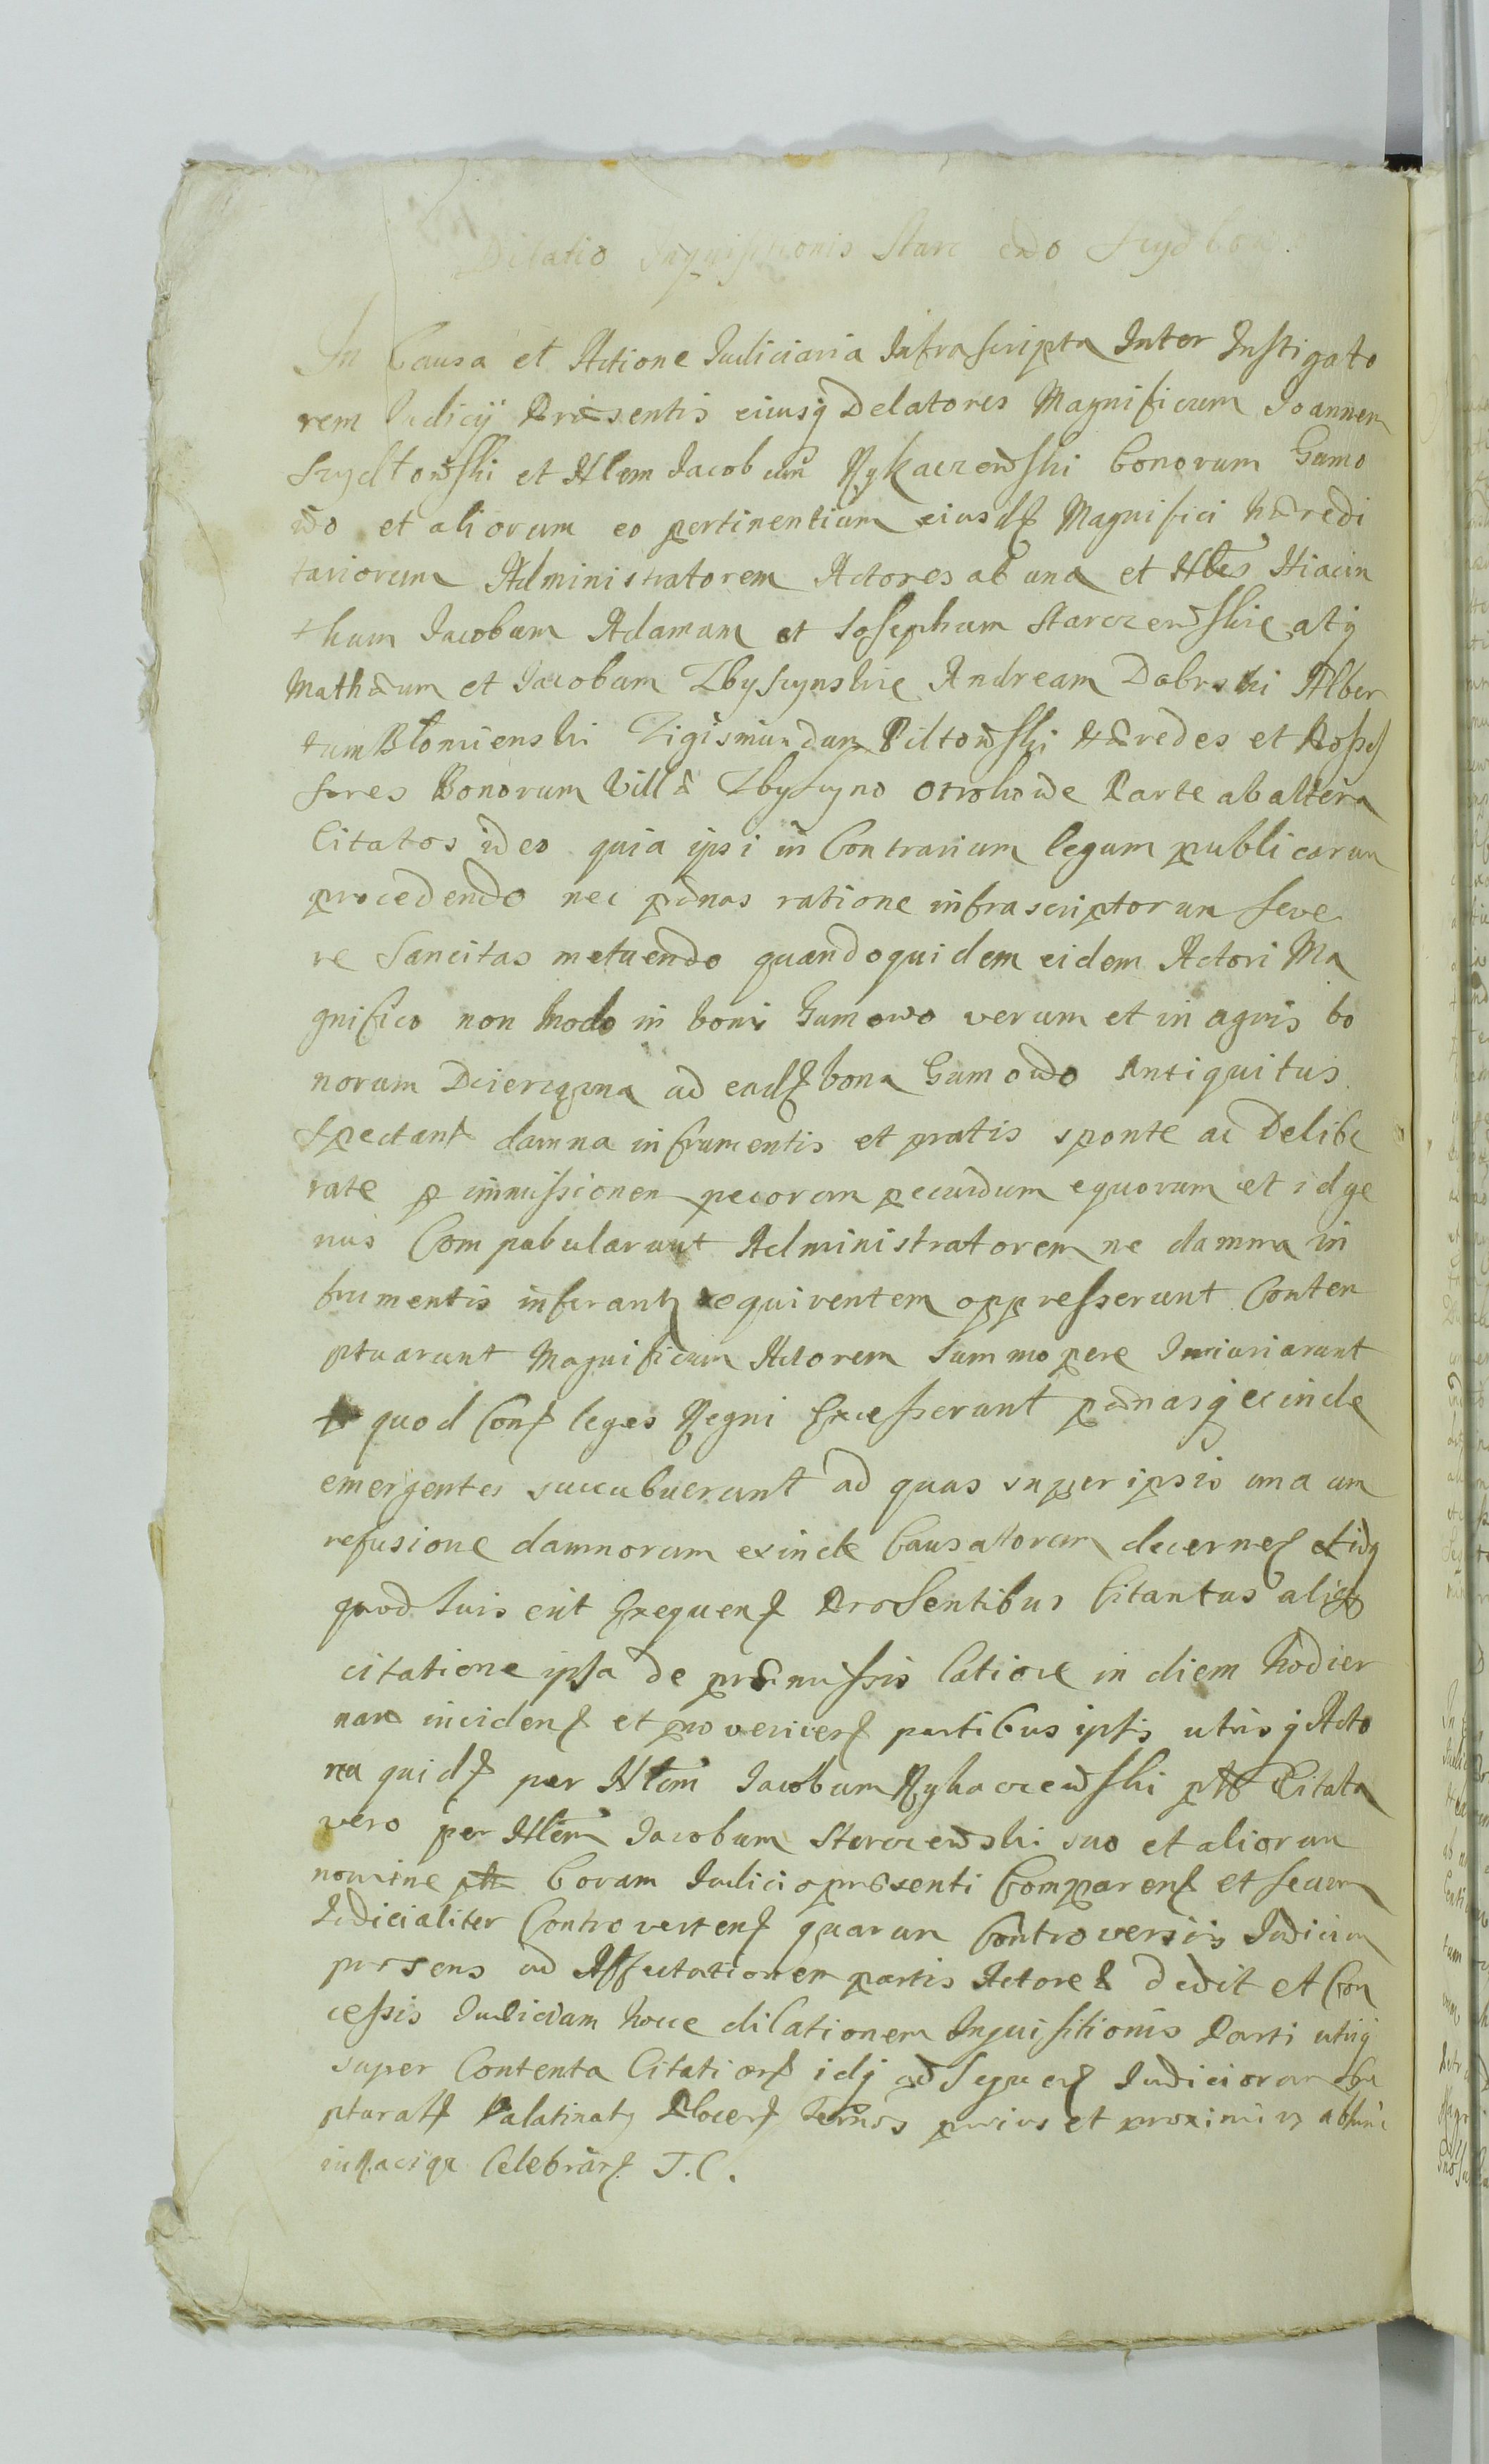 Dilatio Inquisitionis Starc endo Szydłow.
In Causa et Actione Iudiciaria Infrascripta Inter Instigato
rem Iudicij Præsentis eiusq Delatores Magnificum Ioannem
Szydłowski et Nlem Iacobum Rykaczewski bonorum Gumo
wo et aliorum eo pertinentium eiusd Magnifici hæredi
tariorum Administratorem Actores ab una et Nles Hiacin
thum Iacobum Adamum et Iosephum Starczewskie atq
Mathæum et Iacobum Zbyszynskie Andream Dobrski Alber
tum Błomienski Zigismundum Piltowski Hæredes et Posses
sores Bonorum Villæ Zbyszyno Parte ab altera
Citatos ideo quia ipsi in Contrarium legum publicarum
procedendo nec pœnas ratione infrascriptorum seve
re Sancitas metuendo quandoquidem eidem Actori Ma
gnifico non modo in bonis Gumowo verum et in agris bo
norum ad ead bona Gumowo Antiquitus
Spectant damna in frumentis et pratis sponte ac Delibe
rate p immissionem pecorum pecudum equorum et id ge
nus Compabularunt Administratorem ne damna in
frumentis inferant requirentem oppresserunt Contem
ptuarunt Magnificum Actorem Summopere Iniuriarunt
quod Cont leges Regni Excesserunt pœnasq exinde
emergentes succubuerunt ad quas super ipsis una cum
refusione damnorum exinde Causatorum decernen et idq
quod Iuris erit Exequen Præsentibus Citantus aliasq
citatione ipsa de præmissis latiore in diem hodier
nam inciden et provenien partibus ipsis utrisq Acto
rea quid per Nlem Iacobum Rykaczewski ptt Citata
vero per Nlem Iacobum Starczewski suo et aliorum
nomine ptt Coram Iudicio præsenti Comparen et secum
Iudicialiter Controverten quarum Controversiis Iudicium
præsens ad Affectationem partis Actoreæ dedit et Con
cessit Iudicium hocce dilationem Inquisitionis Parti utriq
super Contenta Citation idq ad Sequen Iudiciorum Ca
ptural Palatinat Plocen Terminos prius et proximius abhinc
in Raciąż Celebran T.C.